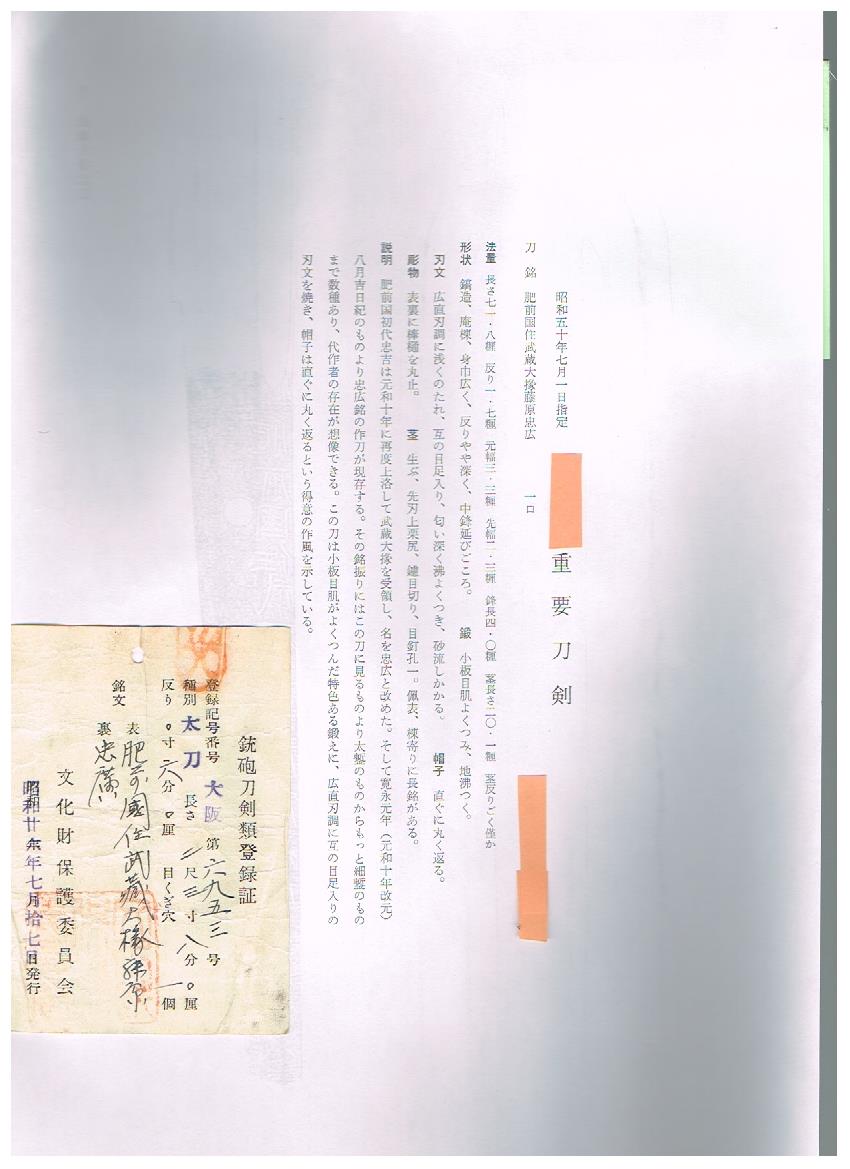 重要刀剣
昭和五十年七月一日指定
刀 銘 肥前国住武蔵大掾藤原忠広 一口
法量 長さ七一・八糎 反り一・七糎 元幅三・三糎 先幅二・三糎 鋒長四・〇糎 茎長さ二〇・一糎 茎反りごく僅か
形状 鎬造、庵棟、身巾広く、反りやや深く、中鋒延びごころ。 鍛 小板目肌よくつみ、地沸つく。
刃文 広直刃調に浅くのたれ、互の目足入り、匂い深く沸よくつき、砂流しかかる。 帽子 直ぐに丸く返る。
彫物 表裏に棒樋を丸止。 茎 生ぶ、先刃上栗尻、鑢目切り、目釘孔一。佩表、棟寄りに長銘がある。
説明 肥前国初代忠吉は元和十年に再度上洛して武蔵大掾を受領し、名を忠広と改めた。そして寛永元年(元和十年改元)
八月吉日紀のものより忠広銘の作刀が現存する。その銘振りにはこの刀に見るものより太鏨のものからもっと細鏨のもの
まで数種あり、代作者の存在が想像できる。この刀は小板目肌がよくつんだ特色ある鍛えに、広直刃調に互の目足入りの
刃文を焼き、帽子は直ぐに丸く返るという得意の作風を示している。
銃砲刀剣類登録証
登録記号番号 大阪 第六九五三号
種別 太刀 長さ 二尺三寸八分〇厘
反り 〇寸六分〇厘 目くぎ穴 一個
銘文 表 肥前國住武藏大掾藤原
裏 忠廣
文化財保護委員会
昭和廿六年七月拾七日発行